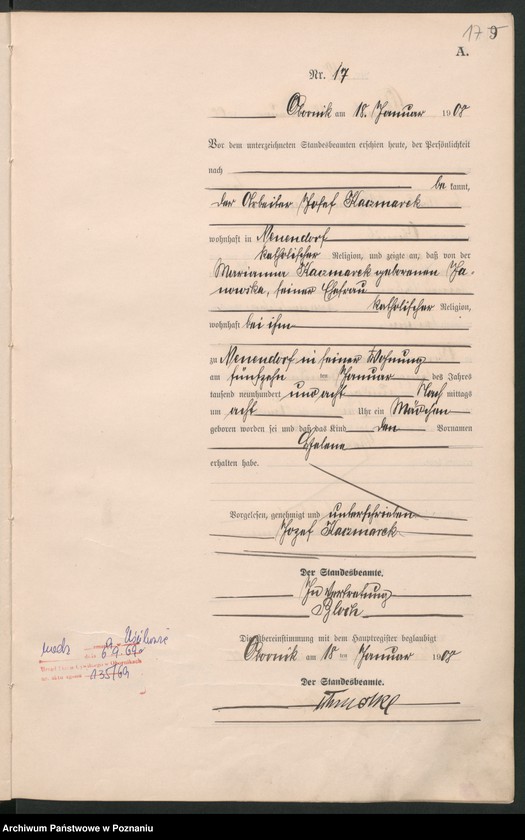 17 9
A.
Nr. 17
Obornik am 18. Januar 1908
Vor dem unterzeichneten Standesbeamten erschien heute, der Persönlichkeit
nach
be kannt,
der Arbeiter Josef Kaczmarek
wohnhaft in Neuendorf
katholischer Religion, und zeigte an, daß von der
Marianna Kaczmarek geborenen Ja-
nowska, seiner Ehefrau
katholischer Religion,
wohnhaft bei ihm
zu Neuendorf in seiner Wohnung
am fünfzehn ten Januar des Jahres
tausend neunhundert und acht Nach mittags
um acht Uhr ein Mädchen
geboren worden sei und daß das Kind den Vornamen
Helene
erhalten habe.
Vorgelesen, genehmigt und unterschrieben
Jozef Kaczmarek
Der Standesbeamte.
In Vertretung
Die Übereinstimmung mit dem Hauptregister beglaubigt
Obornik am 18 ten Januar 1908
Der Standesbeamte.
135/69
Archiwum Państwowe w Poznaniu